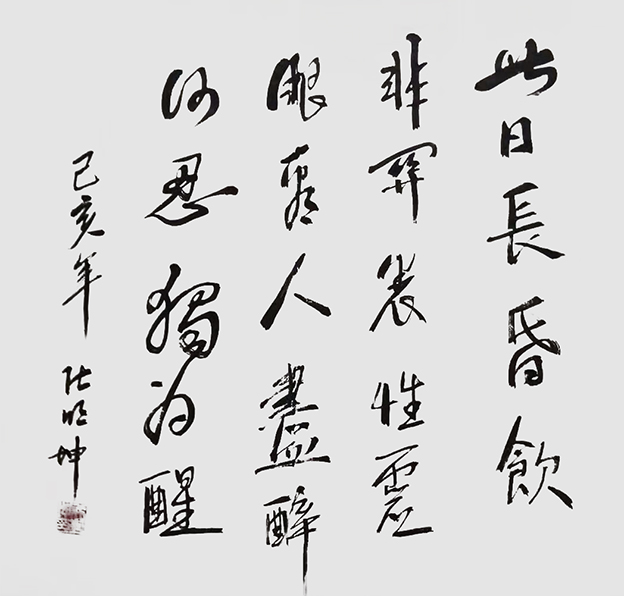 此日長昏飲
非關養性靈
眼看人盡醉
何忍獨为醒
己亥年 明坤